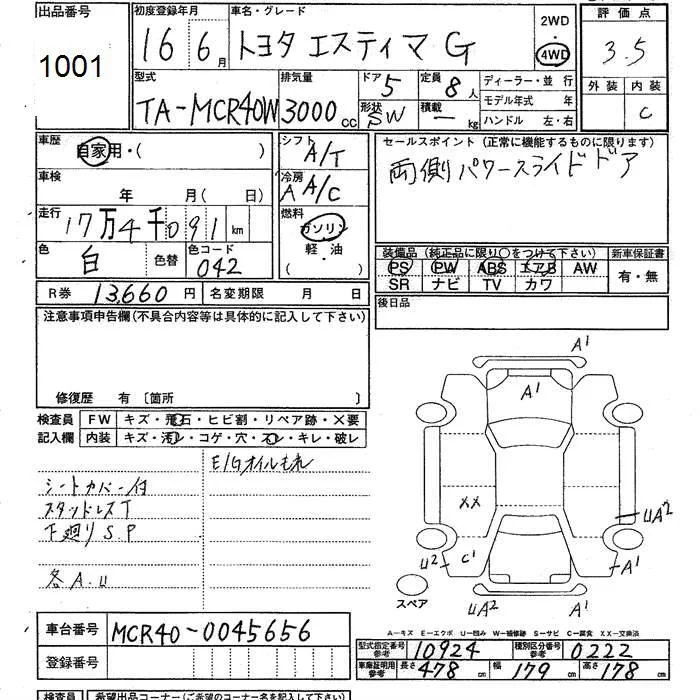 出品番号
1001
初度登録年月
16年 6月
車名・グレード
トヨタ エスティマ G
2WD
4WD
評価点
3.5
外装 内装
C
型式
TA-MCR40W
排気量
3000cc
ドア
5
形状
SW
定員
8人
積載
ー kg
ディーラー・並 行
モデル年式 年
ハンドル 左・右
車歴
自家用・( )
車検
年 月( 日)
走行
17万4千091km
色
白
色替
色コード
042
シフト
A/T
冷房
A A/C
燃料
ガソリン
軽・油
( )
セールスポイント(正常に機能するものに限ります)
両側パワースライドドア
装備品(純正品に限り○をつけて下さい)
PS PW ABS エアB AW
SR ナビ TV カワ
新車保証書
有・無
後日品
R券 13,660円
名変期限 月 日
注意事項申告欄(不具合内容等は具体的に記入して下さい)
修復歴 有〔箇所 〕
検査員
記入欄
FW キズ・飛石・ヒビ割・リペア跡・×要
内装 キズ・汚レ・コゲ・穴・スレ・キレ・破レ
E/Gオイルもれ
シートカバー付
スタッドレスT
下廻りS.P
各A.U
A1
A1
XX
UA2
U2
C1
A1
UA2
スペア
A―キズ E―エクボ U―凹み W―補修跡 S―サビ C―腐食 XX―交換済
車台番号 MCR40-0045656
登録番号
型式指定番号
参考
10924
種別区分番号
参考
0222
車庫証明用
参考
長さ 478cm 幅 179cm 高さ 178cm
検査員 希望出品コーナー(ご希望のコーナー名を記入下さい)